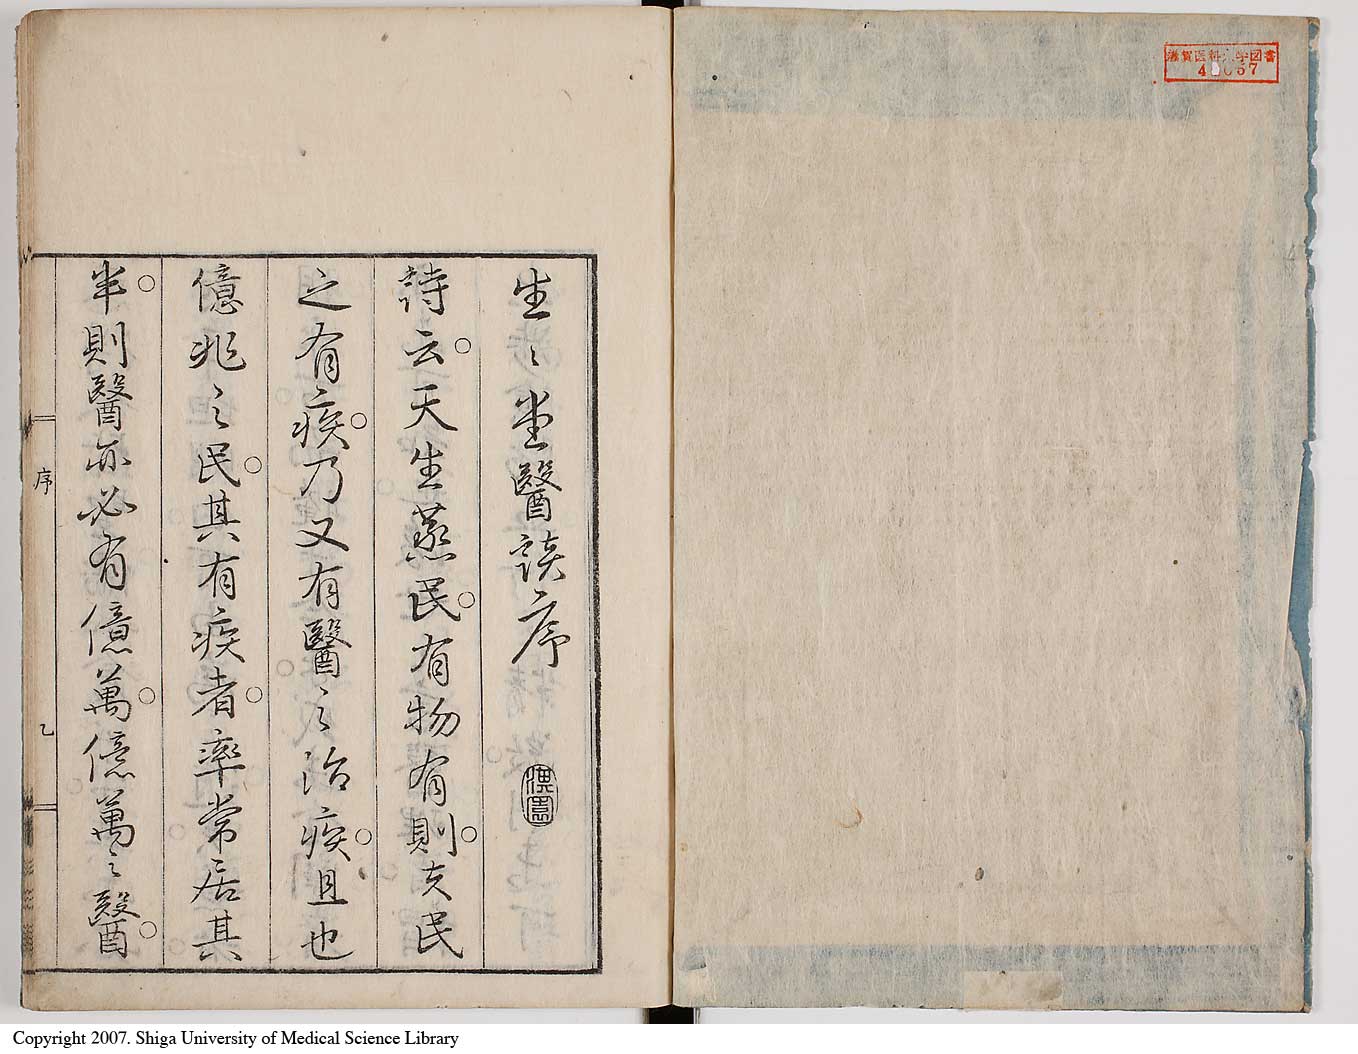 滋賀医科大学図書
生〻堂醫談序
詩云天生蒸民有物有則夫民
之有疾乃又有醫之治疾且也
億兆之民其有疾者率常居其
半則醫亦必有億萬億萬之醫
序
乙
Copyright 2007. Shiga University of Medical Science Library